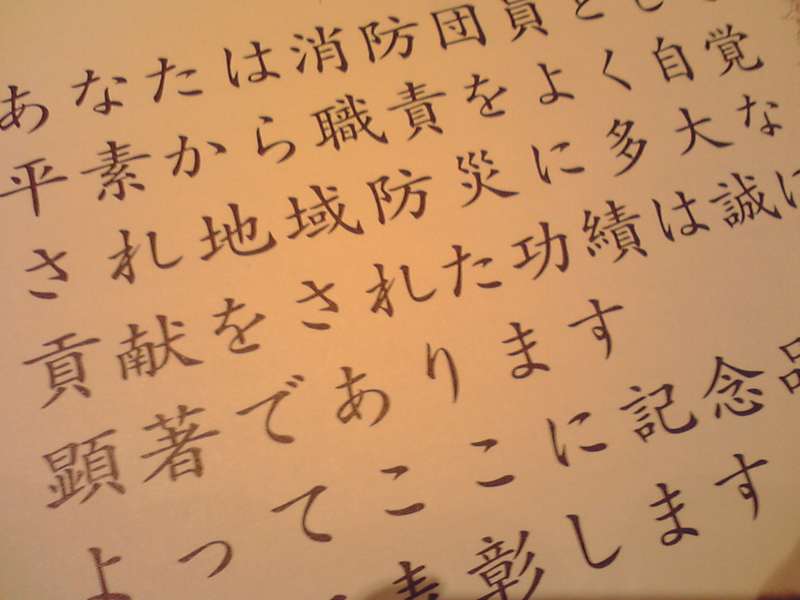 あなたは消防団員とし
平素から職責をよく自覚
され地域防災に多大な
貢献をされた功績は誠に
顕著であります
よってここに記念品
表彰します